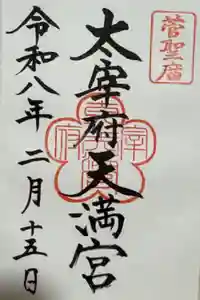 菅聖廟
太宰府天満宮
令和八年二月十五日